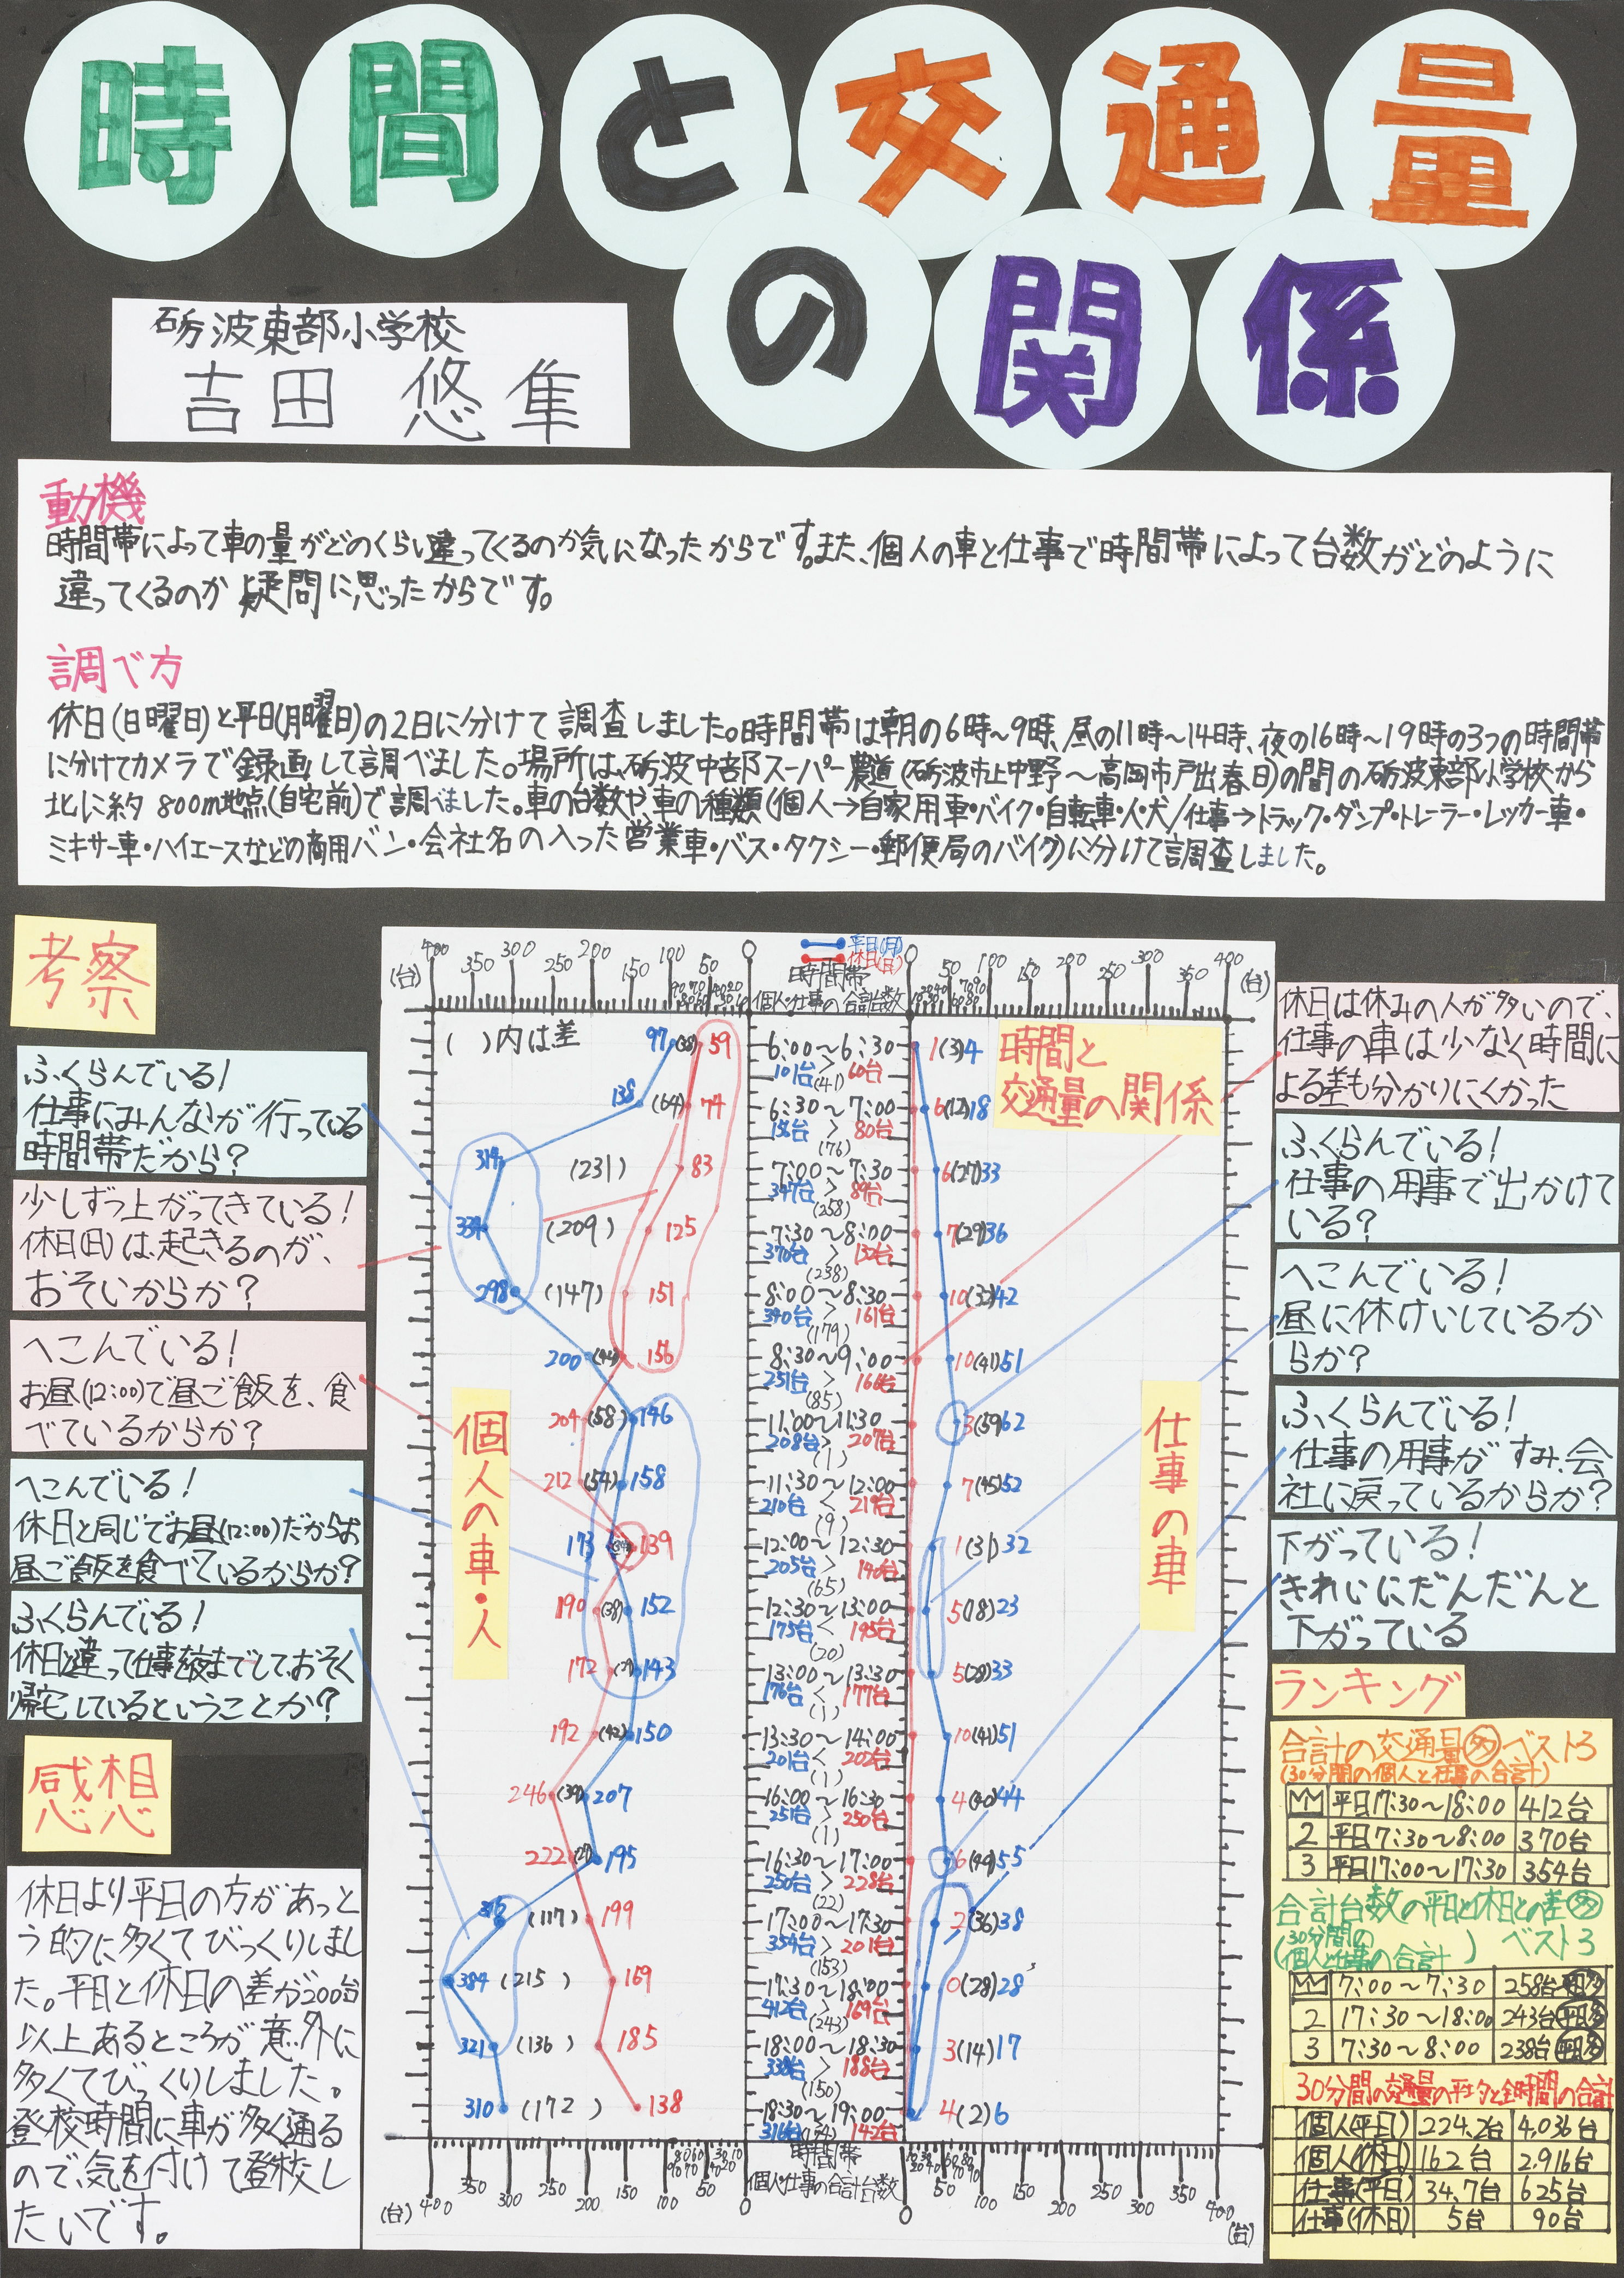 時間と交通量
の関係
砺波東部小学校
吉田 悠隼
動機
時間帯によって車の量がどのくらい違ってくるのか気になったからです。また、個人の車と仕事で時間帯によって台数がどのように
違ってくるのか疑問に思ったからです。
調べ方
休日(日曜日)と平日(月曜日)の2日に分けて調査しました。時間帯は朝の6時～9時、昼の11時～14時、夜の16時～19時の3つの時間帯
に分けてカメラで録画して調べました。場所は、砺波中部スーパー農道(砺波市上中野～高岡市戸出春日)の間の砺波東部小学校から
北に約800m地点(自宅前)で調べました。車の台数や、車の種類(個人→自家用車・バイク・自転車・人・犬/仕事→トラック・ダンプ・トレーラー・レッカー車・
ミキサー車・ハイエースなどの商用バン・会社名の入った営業車・バス・タクシー・郵便局のバイク)に分けて調査しました。
考察
ふくらんでいる!
仕事にみんなが行っている
時間帯だから?
少しずつ上がってきている!
休日(日)は、起きるのが、
おそいからか?
へこんでいる!
お昼(12:00)で昼ご飯を、食
べているからか?
へこんでいる!
休日と同じでお昼(12:00)だからお
昼ご飯を食べているからか?
ふくらんでいる!
休日と違って仕事を夜までして、おそく
帰宅しているということか?
感想
休日より平日の方があっと
う的に多くてびっくりしまし
た。平日と休日の差が200台
以上あるところが意外に
多くてびっくりしました。
登校時間に車が多く通る
ので、気を付けて登校し
たいです。
400 350 300 250 200 150 100 50 0
(台)
平日(月)
休日(日)
時間帯
個人・仕事の合計台数
0 50 100 150 200 250 300 350 400
(台)
( )内は差
時間と
交通量の関係
個人の車・人
仕事の車
97 (38) 59 6:00～6:30 1(3)4
101台 > 60台
(41)
138 (64) 74 6:30～7:00 6(12)18
156台 > 80台
(76)
314 (231) 83 7:00～7:30 6(27)33
347台 > 89台
(258)
334 (209) 125 7:30～8:00 7(29)36
370台 > 132台
(238)
298 (147) 151 8:00～8:30 10(32)42
340台 > 161台
(179)
200 (44) 156 8:30～9:00 10(41)51
251台 > 166台
(85)
204 (58) 146 11:00～11:30 3(59)62
208台 > 207台
(1)
212 (54) 158 11:30～12:00 7(45)52
210台 < 219台
(9)
173 (34) 139 12:00～12:30 1(31)32
205台 > 140台
(65)
190 (38) 152 12:30～13:00 5(18)23
175台 < 195台
(20)
172 (29) 143 13:00～13:30 5(28)33
176台 < 177台
(1)
192 (42) 150 13:30～14:00 10(41)51
201台 < 202台
(1)
246 (39) 207 16:00～16:30 4(40)44
251台 > 250台
(1)
222 (27) 195 16:30～17:00 6(49)55
250台 > 228台
(22)
316 (117) 199 17:00～17:30 2(36)38
354台 > 201台
(153)
384 (215) 169 17:30～18:00 0(28)28
412台 > 169台
(243)
321 (136) 185 18:00～18:30 3(14)17
338台 > 188台
(150)
310 (172) 138 18:30～19:00 4(2)6
316台 (174) 142台
時間帯
個人・仕事の合計台数
(台) 400 350 300 250 200 150 100 50 0
0 50 100 150 200 250 300 350 400
(台)
休日は休みの人が多いので、
仕事の車は少なく時間に
よる差も分かりにくかった
ふくらんでいる!
仕事の用事で出かけて
いる?
へこんでいる!
昼に休けいしているか
らか?
ふくらんでいる!
仕事の用事がすみ、会
社に戻っているからか?
下がっている!
きれいにだんだんと
下がっている
ランキング
合計の交通量多ベスト3
(30分間の個人と仕事の合計)
平日17:30～18:00 412台
2 平日7:30～8:00 370台
3 平日17:00～17:30 354台
合計台数の平日と休日との差多
(30分間の個人と仕事の合計) ベスト3
7:00～7:30 258台 平日多
2 17:30～18:00 243台 平日多
3 7:30～8:00 238台 平日多
30分間の交通量の平均と全時間の合計
個人(平日) 224.2台 4,036台
個人(休日) 162台 2,916台
仕事(平日) 34.7台 625台
仕事(休日) 5台 90台